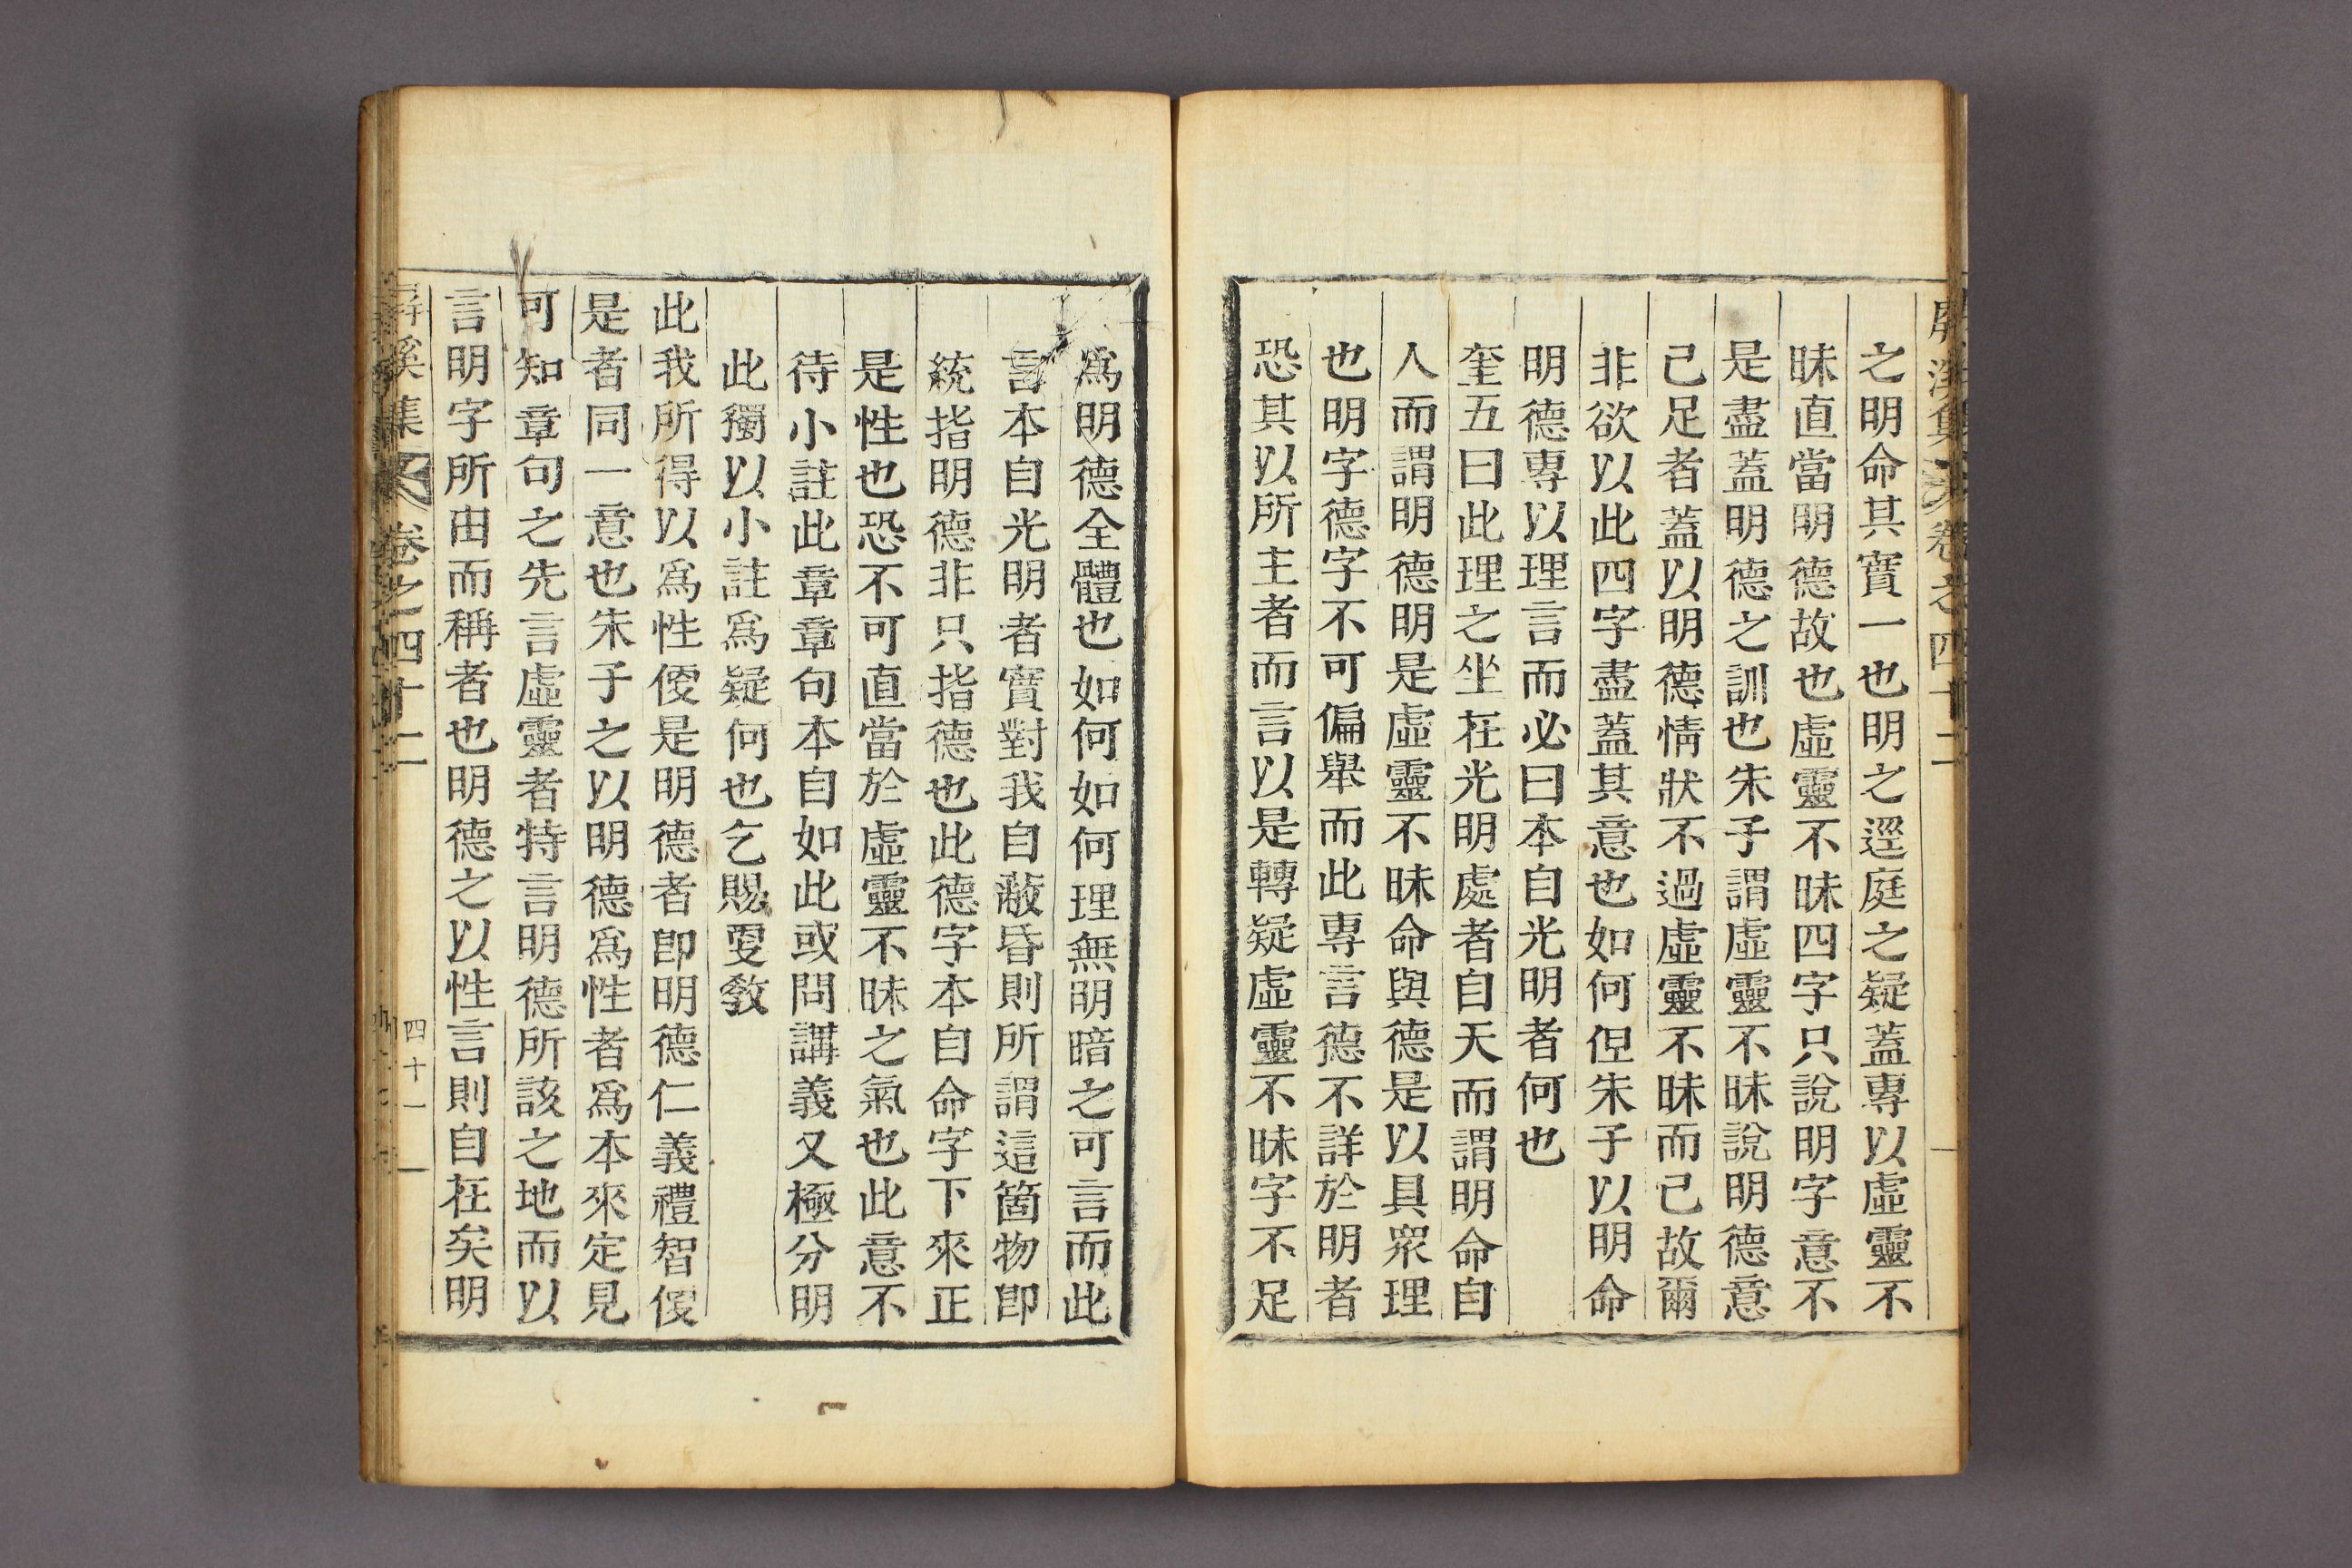 屏溪集 卷之四十二
之明命其實一也明之逕庭之疑蓋專以虛靈不
昧直當明德故也虛靈不昧四字只說明字意不
是盡蓋明德之訓也朱子謂虛靈不昧說明德意
已足者蓋以明德情狀不過虛靈不昧而已故爾
非欲以此四字盡蓋其意也如何但朱子以明命
明德專以理言而必曰本自光明者何也
奎五曰此理之坐在光明處者自天而謂明命自
人而謂明德明是虛靈不昧命與德是以具衆理
也明字德字不可偏舉而此專言德不詳於明者
恐其以所主者而言以是轉疑虛靈不昧字不足
爲明德全體也如何如何理無明暗之可言而此
言本自光明者實對我自蔽昏則所謂這箇物卽
統指明德非只指德也此德字本自命字下來正
是性也恐不可直當於虛靈不昧之氣也此意不
待小註此章章句本自如此或問講義又極分明
此獨以小註爲疑何也乞賜更敎
此我所得以爲性便是明德者卽明德仁義禮智便
是者同一意也朱子之以明德爲性者爲本來定見
可知章句之先言虛靈者特言明德所該之地而以
言明字所由而稱者也明德之以性言則自在矣明
屏溪集 卷之四十二 四十一